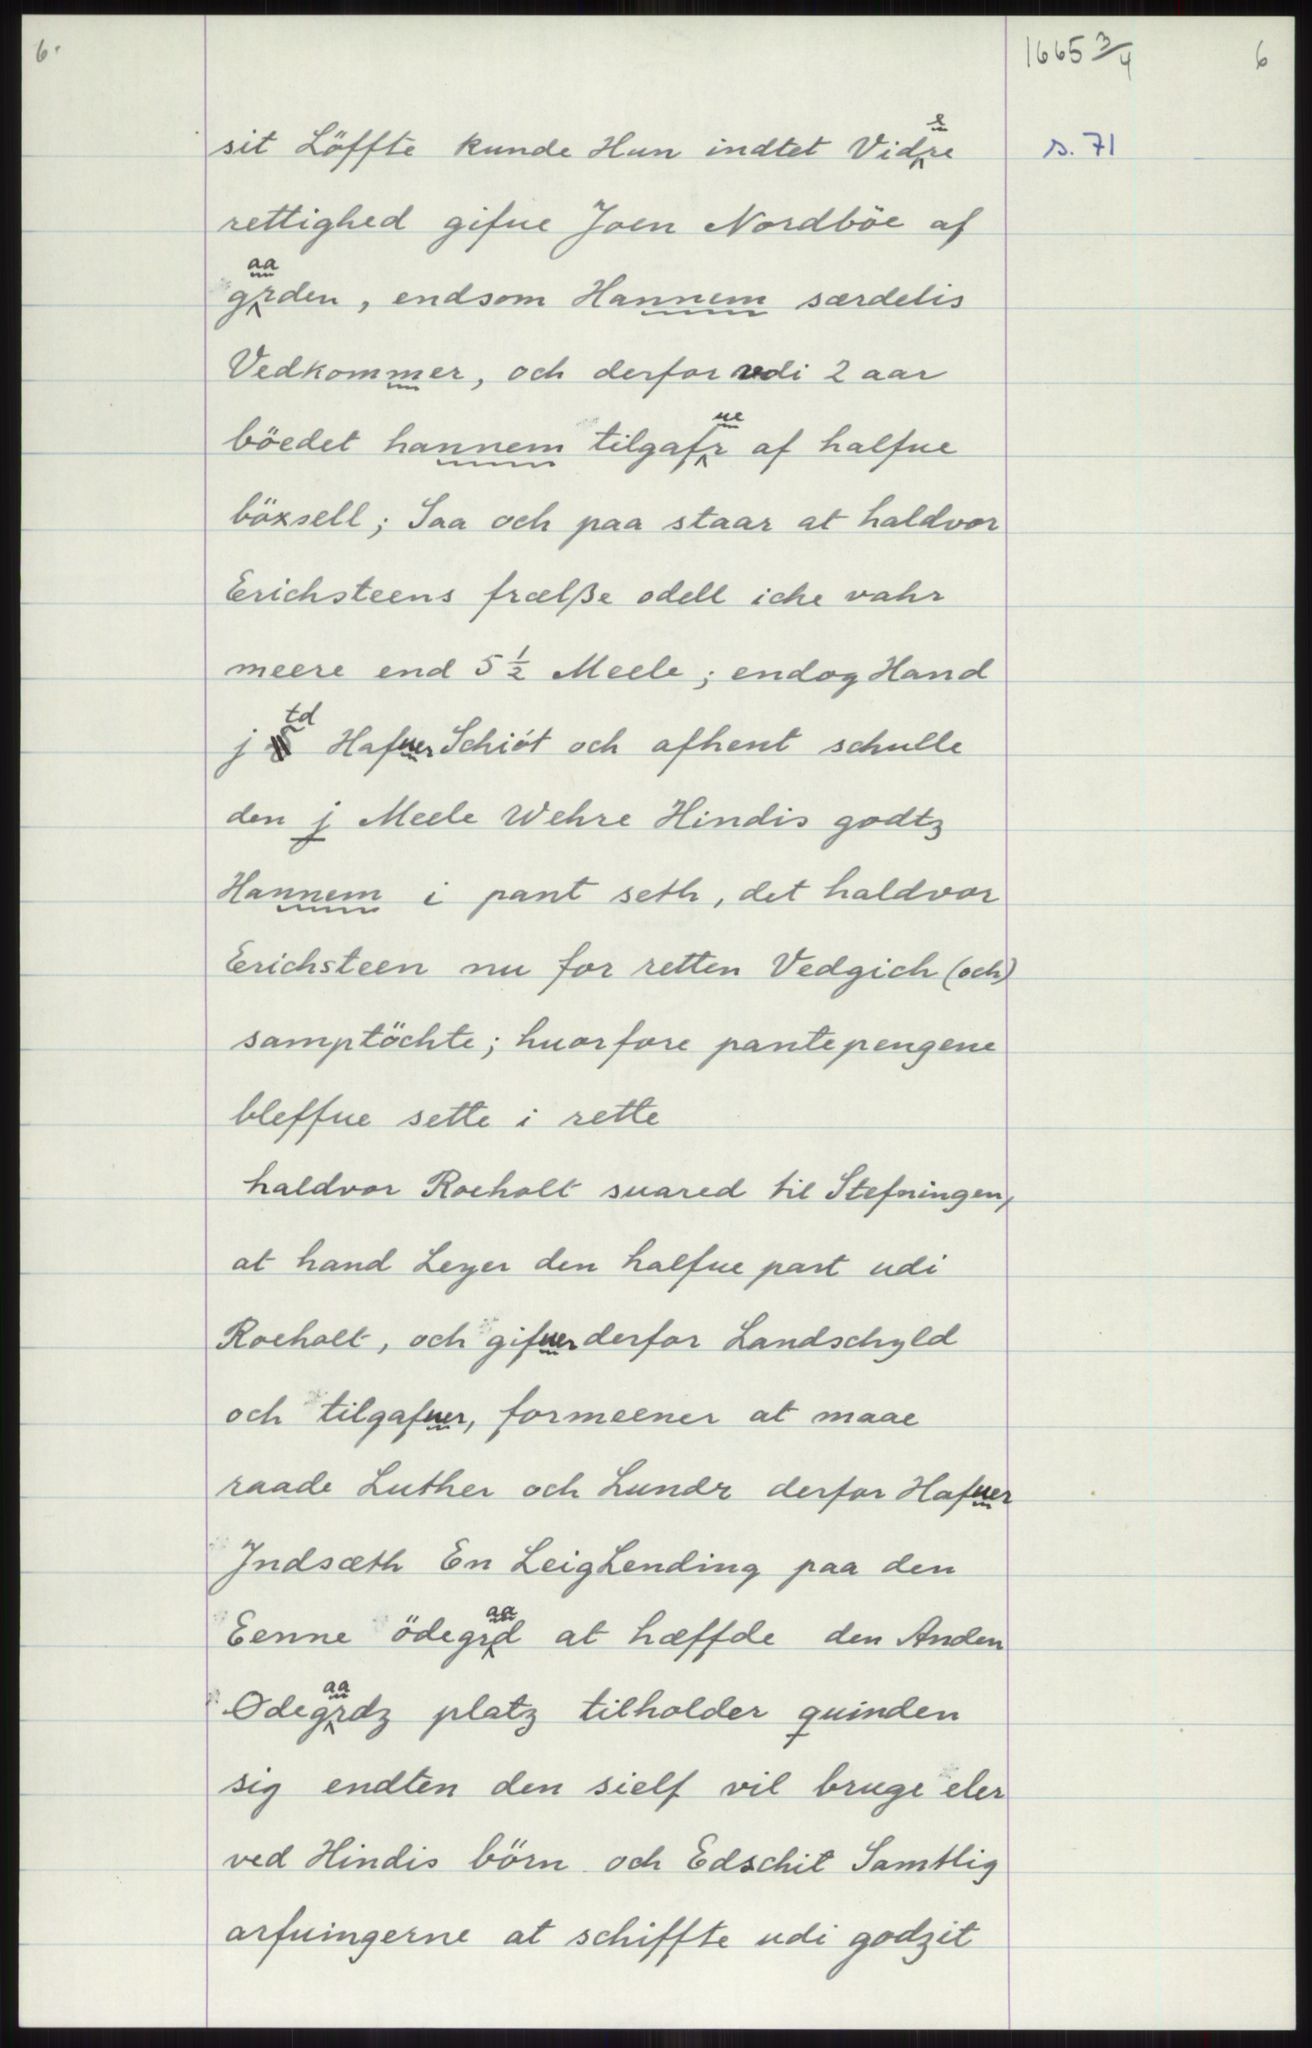 6. 1665 3/4 6
sit Löffte kunde Hun indtet Videre s. 71
rettighed gifue Joen Nordböe af
gaarden, endsom Hannem særdelis
Vedkommer, och derfor udi 2 aar
böedet hannem tilgafuer af halfue
böxsell; Saa och paa staar at haldvor
Erichsteens frælße odell iche vahr
meere end 5 1/2 Meele; endog Hand
j td Hafuer Schiöt och afhent schulle
den j Meele Wehre Hindis godtz
Hannem i pant seth, det haldvor
Erichsteen nu for retten Vedgich (och)
samptöchte; huorfore pantepengene
bleffue sette i rette
haldvor Roeholt suared til Stefningen,
at hand Leyer den halfue part udi
Roeholt, och gifuer derfor Landschyld
och tilgafuer, formeener at maae
raade Luther och Lundr derfor Hafuer
Jndsæth En LeigLending paa den
Eenne ödegaard at hæffde den Anden
Ödegaardz platz tilholder quinden
sig endten den sielf vil bruge eler
ved Hindis börn och Edschit Samtlig
arfuingerne at schiffte udi godzit